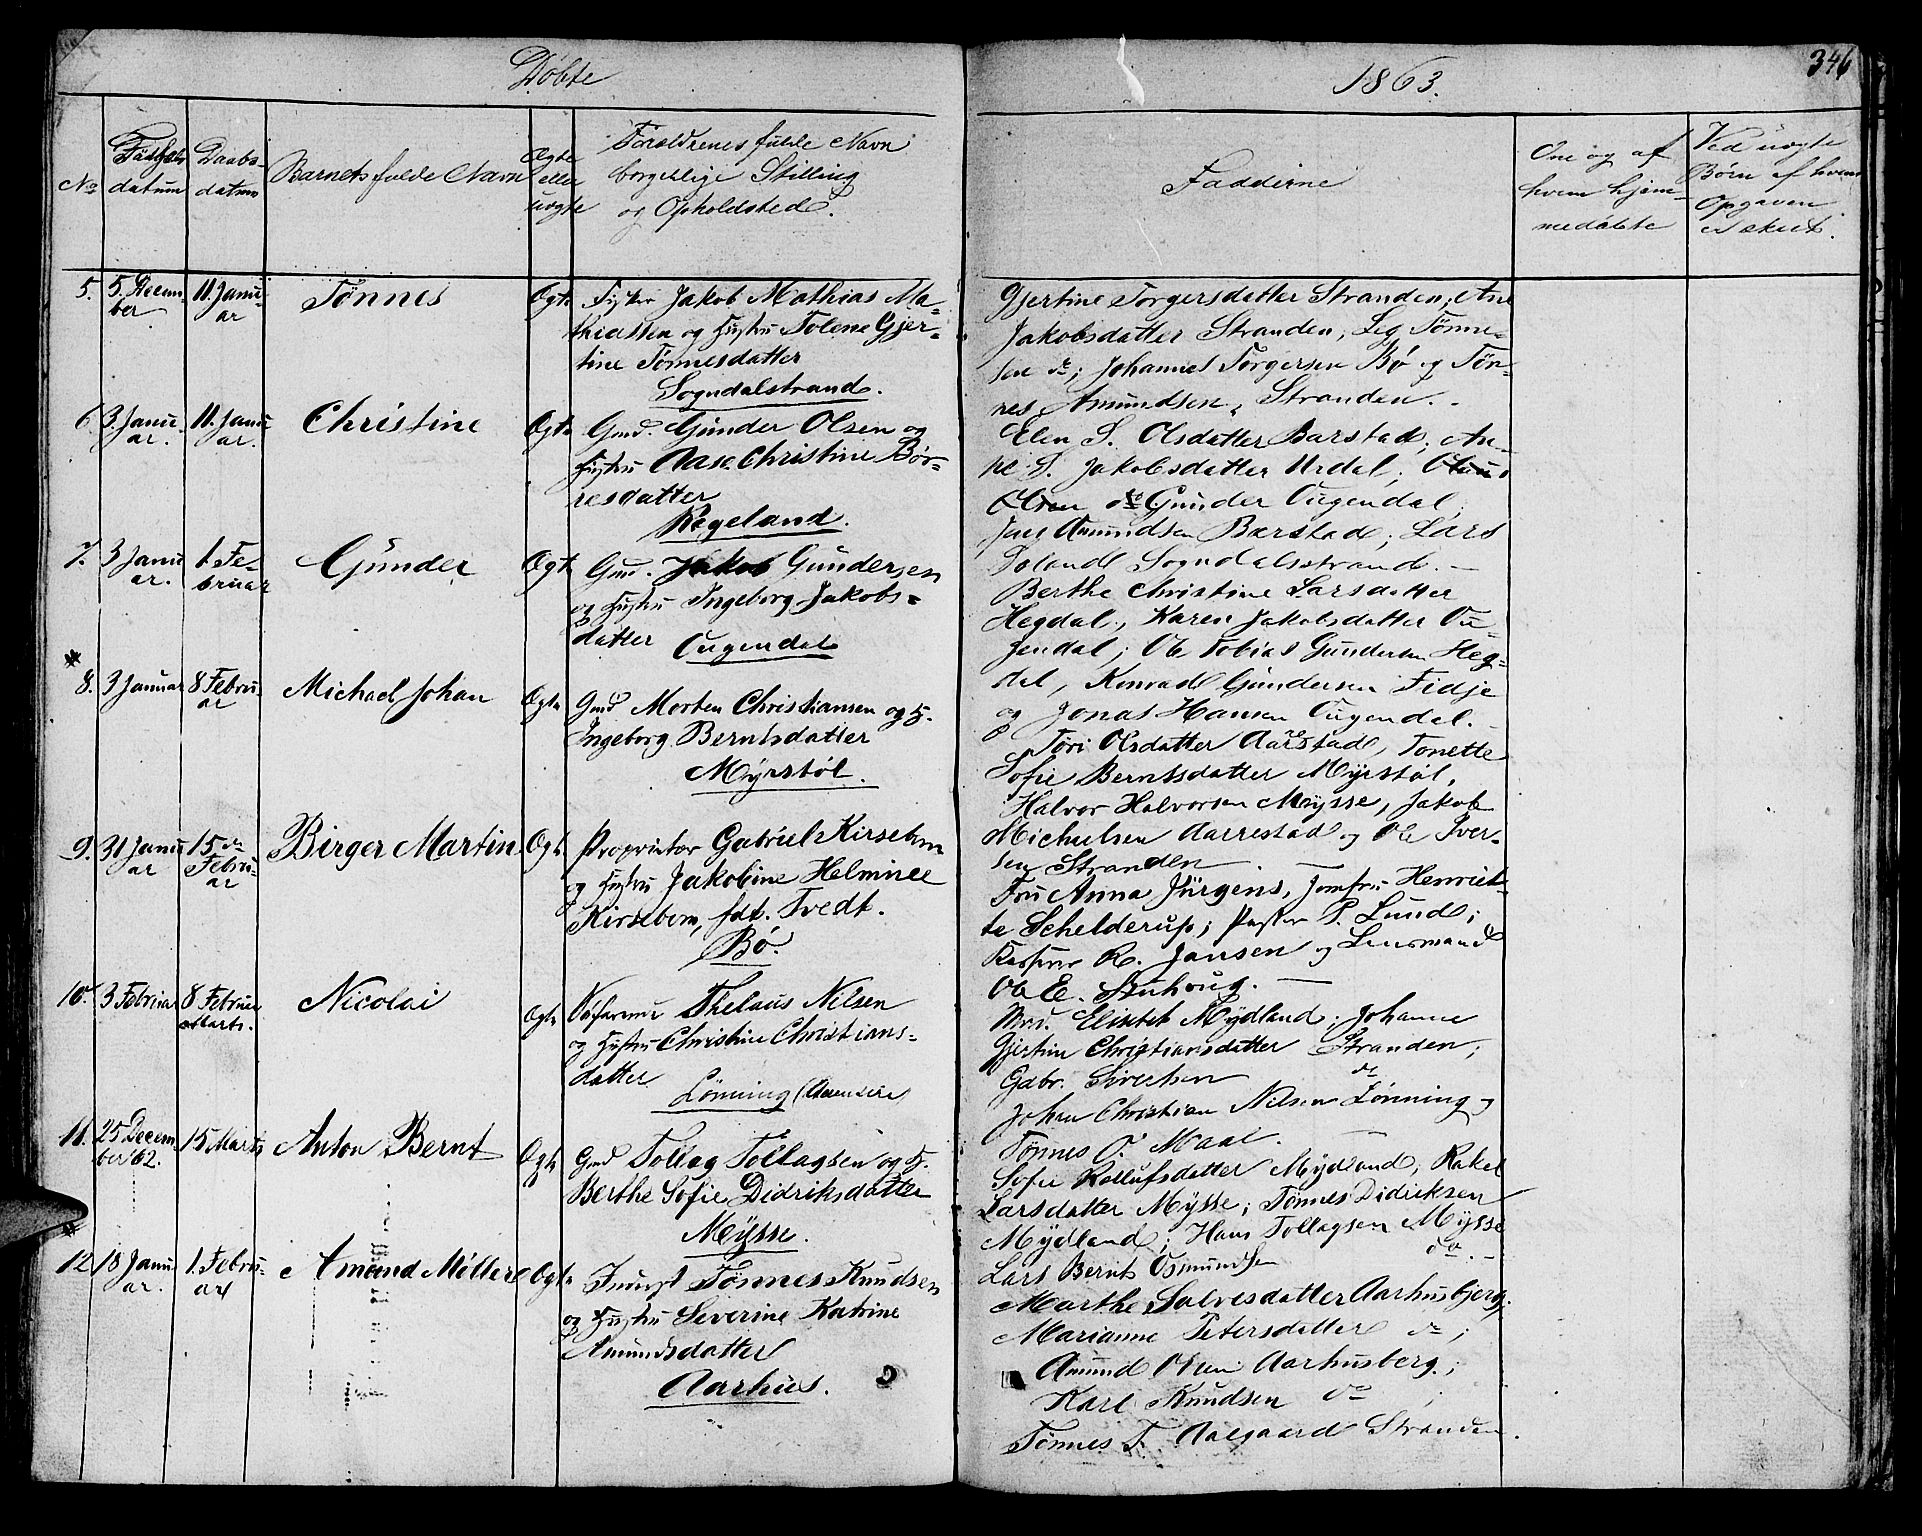 Døbte
1863.
346
No
Fødsels
datum
Daabs
datum
Barnets fulde Navn
Ægte
eller
uægte
Forældrenes fulde Navn
borgerlige Stilling
og Opholdsted.
Fadderne
Om og af
hvem hjem-
medøbte
Ved uægte
Børn af hvem
Opgaven
er skeet.
5.
5. Decem-
ber
11. Janu-
ar
Tønnes
Ægte
Fisker Jakob Mathias Ma-
thiassen og Hustru Tolene Gjer-
tine Tønnesdatter
Sogndalstrand.
Gjertine Torgersdatter Stranden, Ane
Jakobsdatter Stranden, Tønne-
sen do; Johannes Torgersen Bø og Tøn-
nes Amundsen, Stranden.
6.
3. Janu
ar.
11. Janu
ar.
Christine
Ægte
Gmd. Gunder Olsen og
Hustru Aase Christine Bør-
resdatter
Rægeland.
Elen S. Olsdatter Barstad, An-
ne S. Jakobsdatter Urdal,
Olsen do Gunder Ougendal,
Jens Amundsen Barstad; Lars
Doland Sogndalsstrand.
7.
3 Janu
ar.
1. Fe-
bruar
Gunder
Ægte
Gmd. Jakob Gundersen
og Hustru Ingeborg Jakobs-
datter
Ougendal
Berthe Christine Larsdatter
Hegdal, Karen Jakobsdatter Ou
gendal; Ole Tobias Gundersen Heg-
dal, Konrad Gundersen Fidje
og Jonas Hansen Ougendal.
8.
3 Januar
8 Febru-
ar
Michael Johan
Ægte
Gmd Morten Christiansen og H.
Ingeborg Berntsdatter
Myrstøl.
Tori Olsdatter Aarstad, Tonette
Sofie Berntsdatter Myrstøl,
Halvor Halvorsen Mysse, Jakob
Michaelsen Aarrestad og Ole Iver-
sen Stranden
9.
31 Janu
ar
15de
Febru-
ar
Birger Martin
Ægte
Proprietær Gabriel Kirsebom
og Hustru Jakobine Helmine
Kirsebom, født Tvedt.
Bø.
Fru Anna Jürgens, Jomfru Henriet-
te Schelderup; Pastor P. Lund;
R. Jansen og Lensmand
Ole E.
10.
3 Februar
8 Februar
Marts.
Nicolai
Ægte
Veifarende Thelaus Nilsen
og Hustru Christine Christians-
datter
Lønning
Elisabet Mydland, Johanne
Gjertine Christiansdatter Stranden;
Gabr. Sivertsen do
Johan Christian Nilsen Lønning,
Tønnes O. Maal.
11.
25 Decem-
ber 62.
15 Marts
Anton Bernt
Ægte
Gmd Tollag Tollagsen og H.
Berthe Sofie Didriksdatter
Mysse.
Sofie Rollufsdatter Mydland, Rakel
Larsdatter Mysse; Tønnes Didriksen
Mydland; Hans Tollagsen Mysse
Lars Bernt Osmundsen do.
12
18 Janu
ar.
1. Febru-
ar
Amund Møller
Ægte
Inderst Tønnes Knudsen
og Hustru Severine Katrine
Amundsdatter
Aarhus.
Marthe Salvesdatter Aarhusbjerg,
Marianne Petersdatter do;
Amund Olsen Aarhusberg;
Karl Knudsen do;
Tønnes T. Aalgaard Stranden.